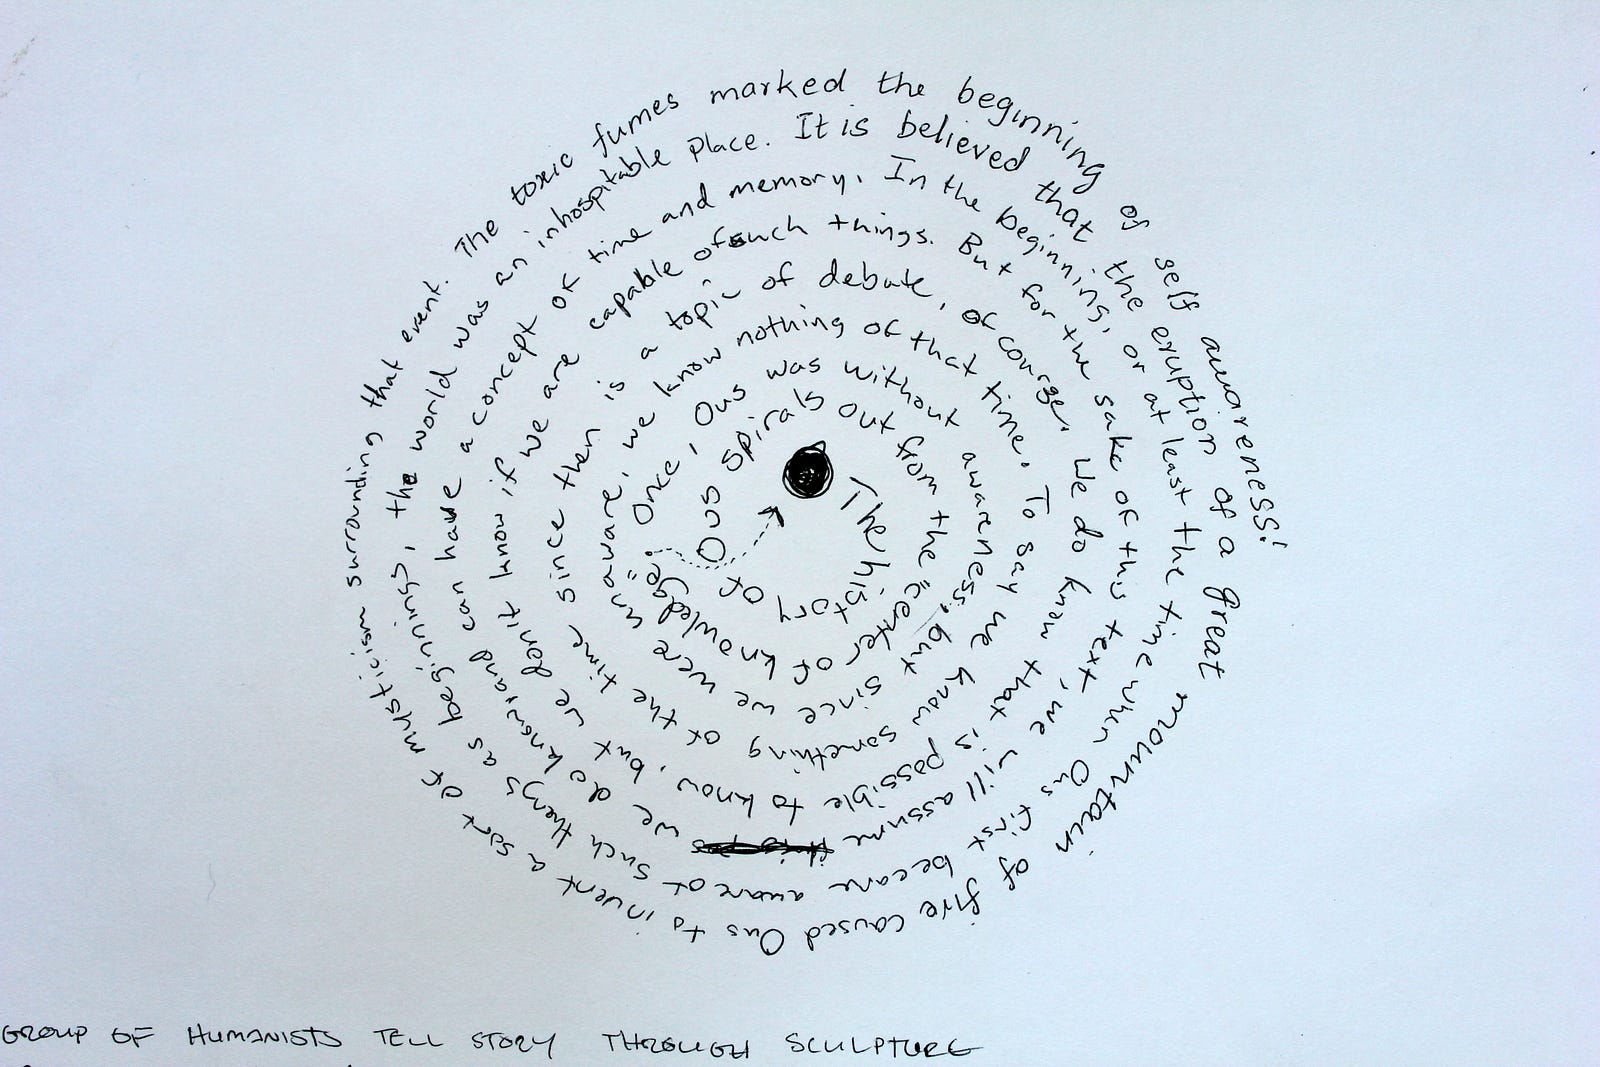 The history of Ous spirals out from the "center of knowledge". Once, Ous was without awareness, but since we were unaware, we know nothing of that time. To say we know something of the time since then is a topic of debate, of course. We do know that is possible to know, but we don't know if we are capable of such things. But for the sake of this text, we will assume we do know, and can have a concept of time and memory. In the beginning, or at least the time when Ous first became aware of such things as beginnings, the world was an inhospitable place. It is believed that the eruption of a great mountain of fire caused Ous to invent a sort of mysticism surrounding that event. The toxic fumes marked the beginning of self awareness!
GROUP OF HUMANISTS TELL STORY THROUGH SCULPTURE